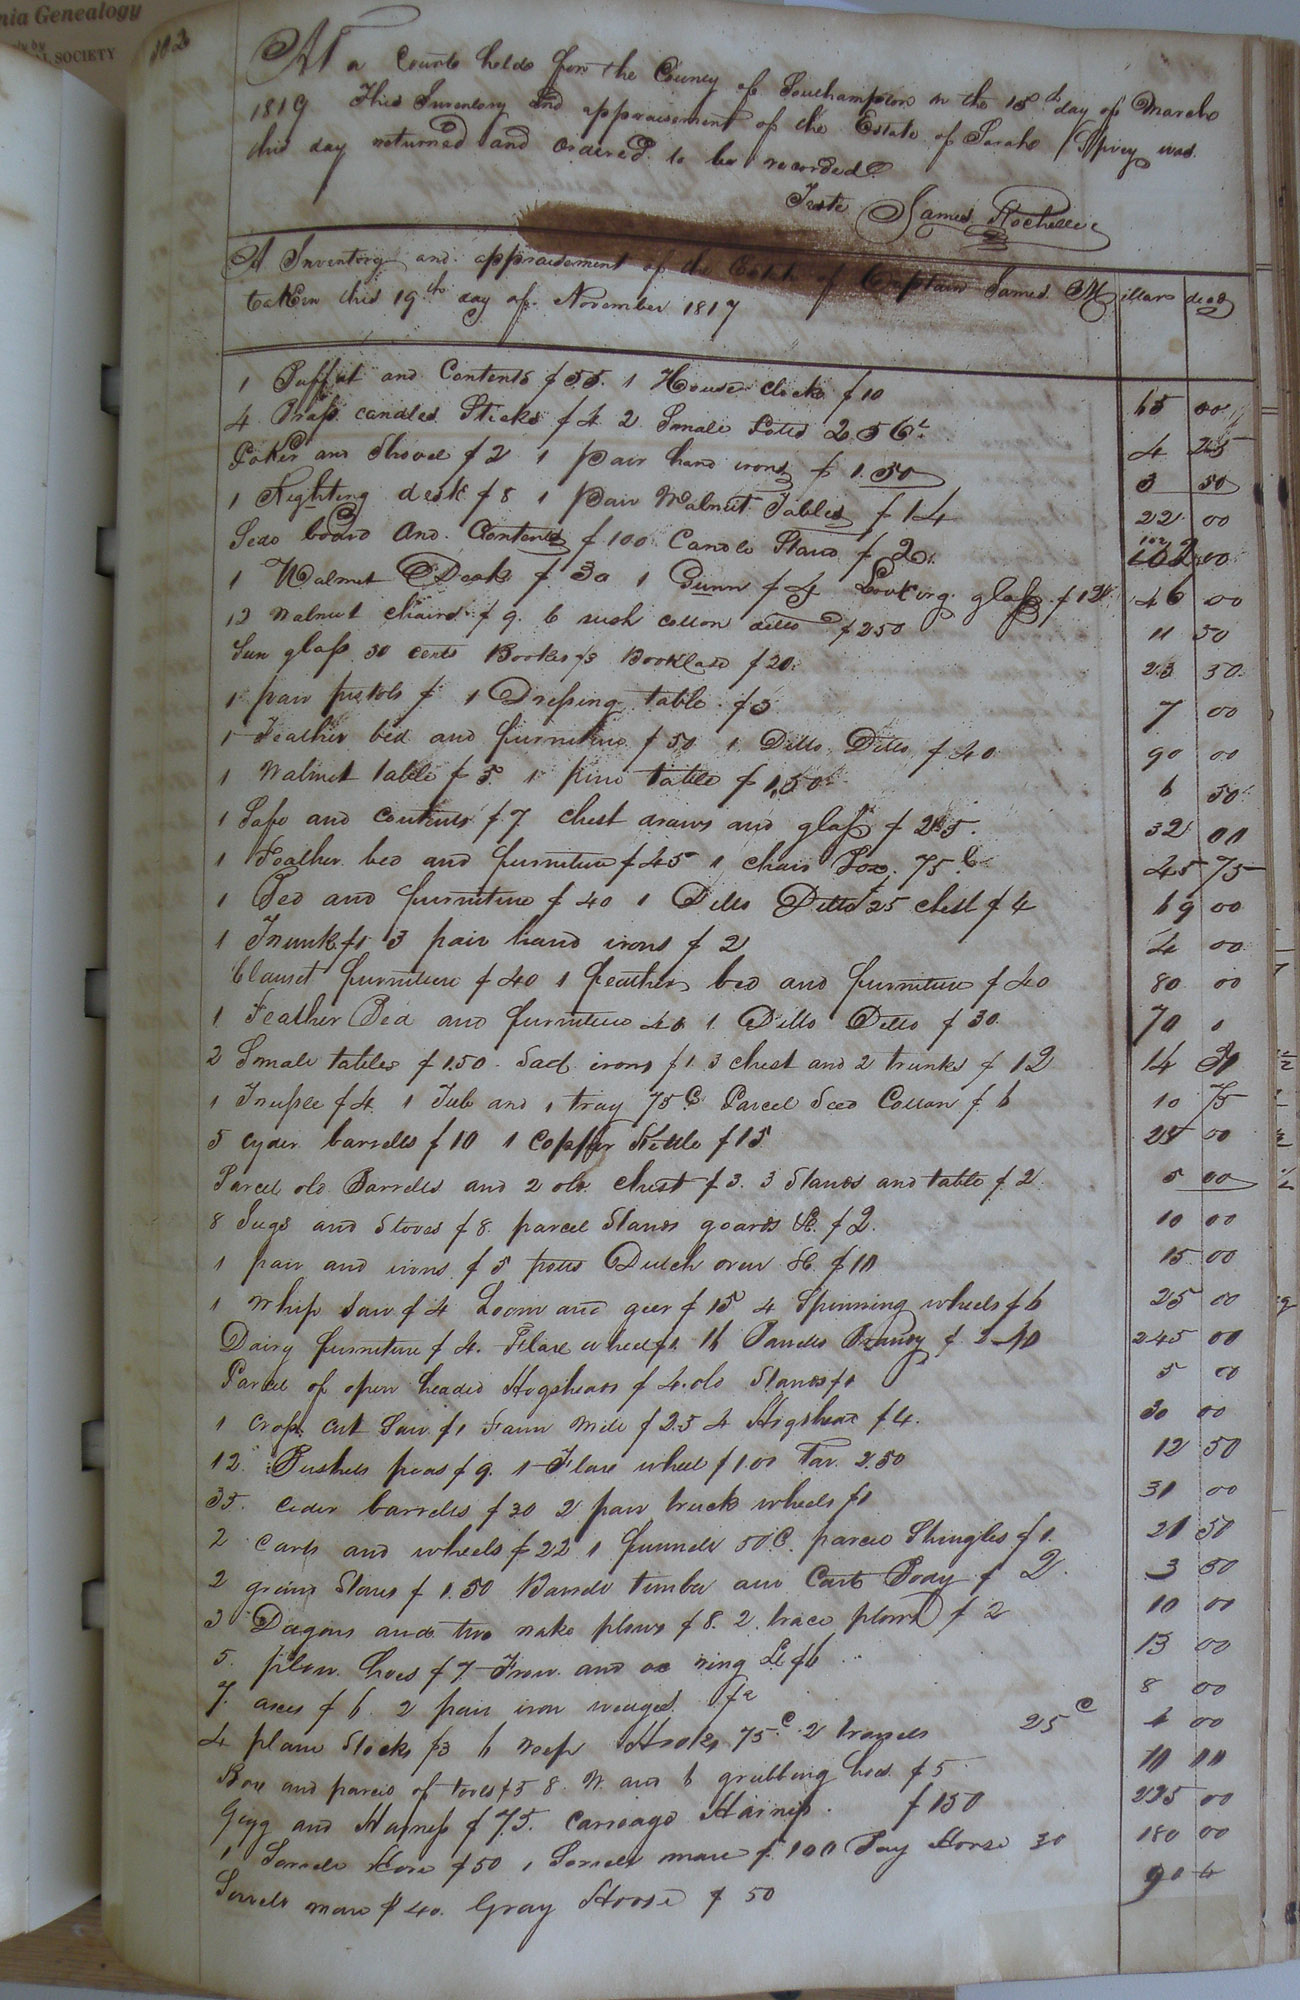 nia Genealogy
SOCIETY
At a Courte helde for the County of Southampton on the 15th day of Marche
1819 This Inventory and appraisement of the Estate of Sarah Spivey was
this day returned and ordered to be recorded
Teste James Rochelle
A Inventory and appraisement of the Estate of Captain James
taken this 19th day of November 1817
1 Buffat and Contents $55. 1 House clock $10 65 00
4 Brass candles Sticks $4 2 Smale 4 25
Poker and Shovel $2 1 pair hand irons $1.50 3 50
1 desk $8 1 pair Walnut Tables $14 22 00
board and Contents $100 Candle Stand $2 102 00
1 Walnut Desk $30 1 Gunn $4 Looking glass $12 46 00
12 walnut chairs $9. 6 rush cotton ditto $250 11 50
Sun glass 30 cents Books $3 $20 23 30
1 pair pistols $ 1 Dressing table $3 7 00
1 Feather bed and furniture $50 1 Ditto Ditto $40 90 00
1 Walnut table $5 1 pine table $1,50 6 50
1 Safe and contents $7 chest draws and glass $25. 32 00
1 Feather bed and furniture $45 1 chair Box 75c 45 75
1 Bed and furniture $40 1 Ditto Ditto 25 chest $4 69 00
1 Trunk $1 3 pair hand irons $2 4 00
Clauset furniture $40 1 feather bed and furniture $40 80 00
1 Feather Bed and furniture 40 1 Ditto Ditto $30 70 0
2 Smale tables $1.50 Sad irons $1 3 chest and 2 trunks $12 14
1 $4 1 Tub and 1 tray 75c Parcel Seed Cotton $6 10 75
5 cyder barrells $10 1 copper Kettle $15 25 00
Parcel old Barrells and 2 old chest $3. 3 Stands and table $2 5 00
8 Jugs and Stoves $8. parcel Stands goards &c. $2. 10 00
1 pair and irons $5 potts Dutch oven &c $10 15 00
1 Whip Saw $4 Loom and geer $15 4 Spinning wheels $6 25 00
Dairy furniture $4. Flax wheel $1. 16 Barrells Brandy $ 245 00
Parcel of open headed Hogsheads $4. old Stands $1 5 00
1 Cross cut Saw $1 Fann Mill $25 4 Hogshead $4. 30 00
12 Bushels peas $9. 1 Flax wheel $1.00 Tar 2.50 12 50
35. cider barrells $30 2 pair truck wheels $1 31 00
2 carts and wheels $22 1 funnell 50c. parcel Shingles $1. 21 50
2 grind Stones $1.50 Barrell timber and Cart Body $2. 3 50
3 Dagons and two rake plows $8. 2 trace plows $2 10 00
5. plow hoes $7 Frow and ox ring &c $6 13 00
7. axes $6. 2 pair iron wedges $2 8 00
4 plane Stocks $3 6 reep Hooks 75c. 2 trowels 25c 4 00
Box and parcel of tools $5 8. W. and 6 grubbing hoes $5 10 00
Gigg and Harness $75. Carriage Harness $150 225 00
1 Sorrell Hors $50 1 Sorrell mare $100 Bay Horse 30 180 00
Sorrell mare $40. Gray Horse $50 90